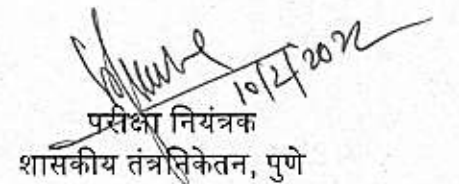 10/2/2022
परीक्षा नियंत्रक
शासकीय तंत्रनिकेतन, पुणे